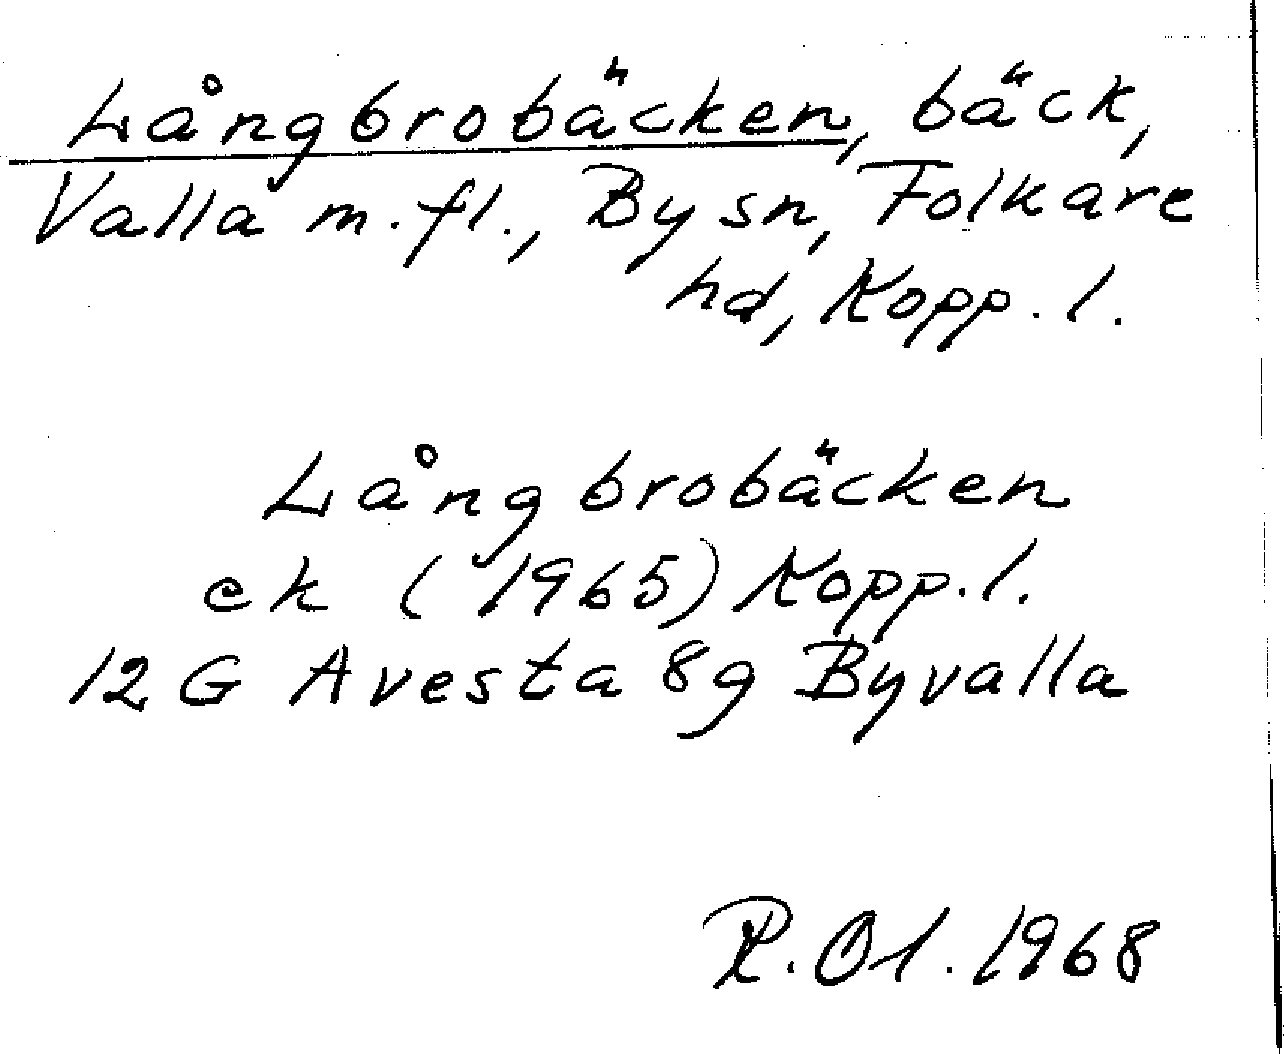 Långbrobäcken, bäck,
Valla m.fl., By sn, Folkare
hd, Kopp. l.
Långbrobäcken
ek (1965) Kopp. l.
12 G Avesta 8g Byvalla
R. Ol. 1968